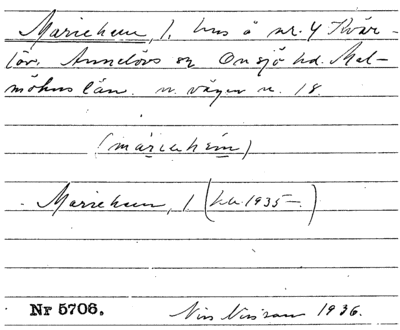 Marieheem, 1, hus å nr. 4 Kvär-
löv. Annelövs sn Onsjö hd. Mal-
möhus län. n. vägen n. 18.
(mariehem)
Marieheem, 1 (1935—)
Nr 5706. Nils Nilsson 1936.